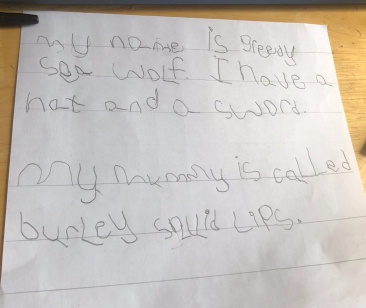 my name is greedy
sea wolf I have a
hat and a sword.
My mummy is called
burley squid Lips.